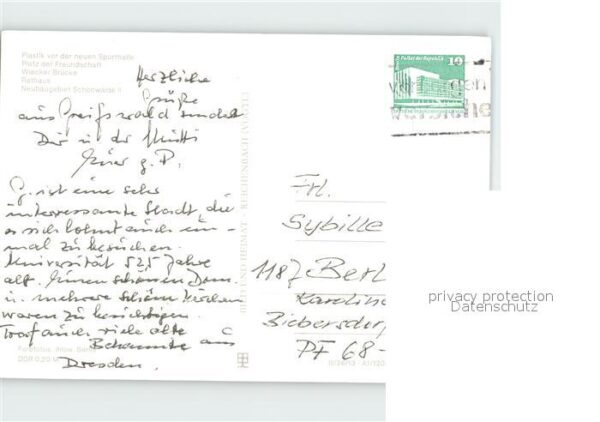 Plastik vor der neuen Sporthalle
Platz der Freundschaft
Wiecker Brücke
Rathaus
Neubaugebiet Schönwalde II
Herzliche
Grüße
aus Greifswald sendet
Dir u. der Mutti
Euer g. P.
G. ist eine sehr
interessante Stadt, die
es sich lohnt auch ein-
mal zu besuchen.
Universität 525 Jahre
alt. Einen schönen Dom
u. mehrere schöne Kirchen
waren zu besichtigen.
Traf auch viele alte
Bekannte aus
Dresden.
Palast der Republik
10
Frl.
Sybille
1187 Berl
Karolinen
Biebersdorf
PF 68-
BILD UND HEIMAT · REICHENBACH
DDR 0,20 M
privacy protection
Datenschutz